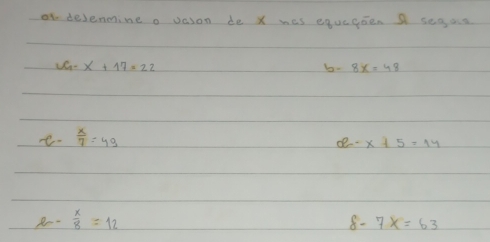 01- determine o valor de x nas equações a seguir
a- x + 17 = 22
b- 8x = 48
c- x/7 = 49
d- x + 5 = 14
e- x/8 = 12
f- 7x = 63